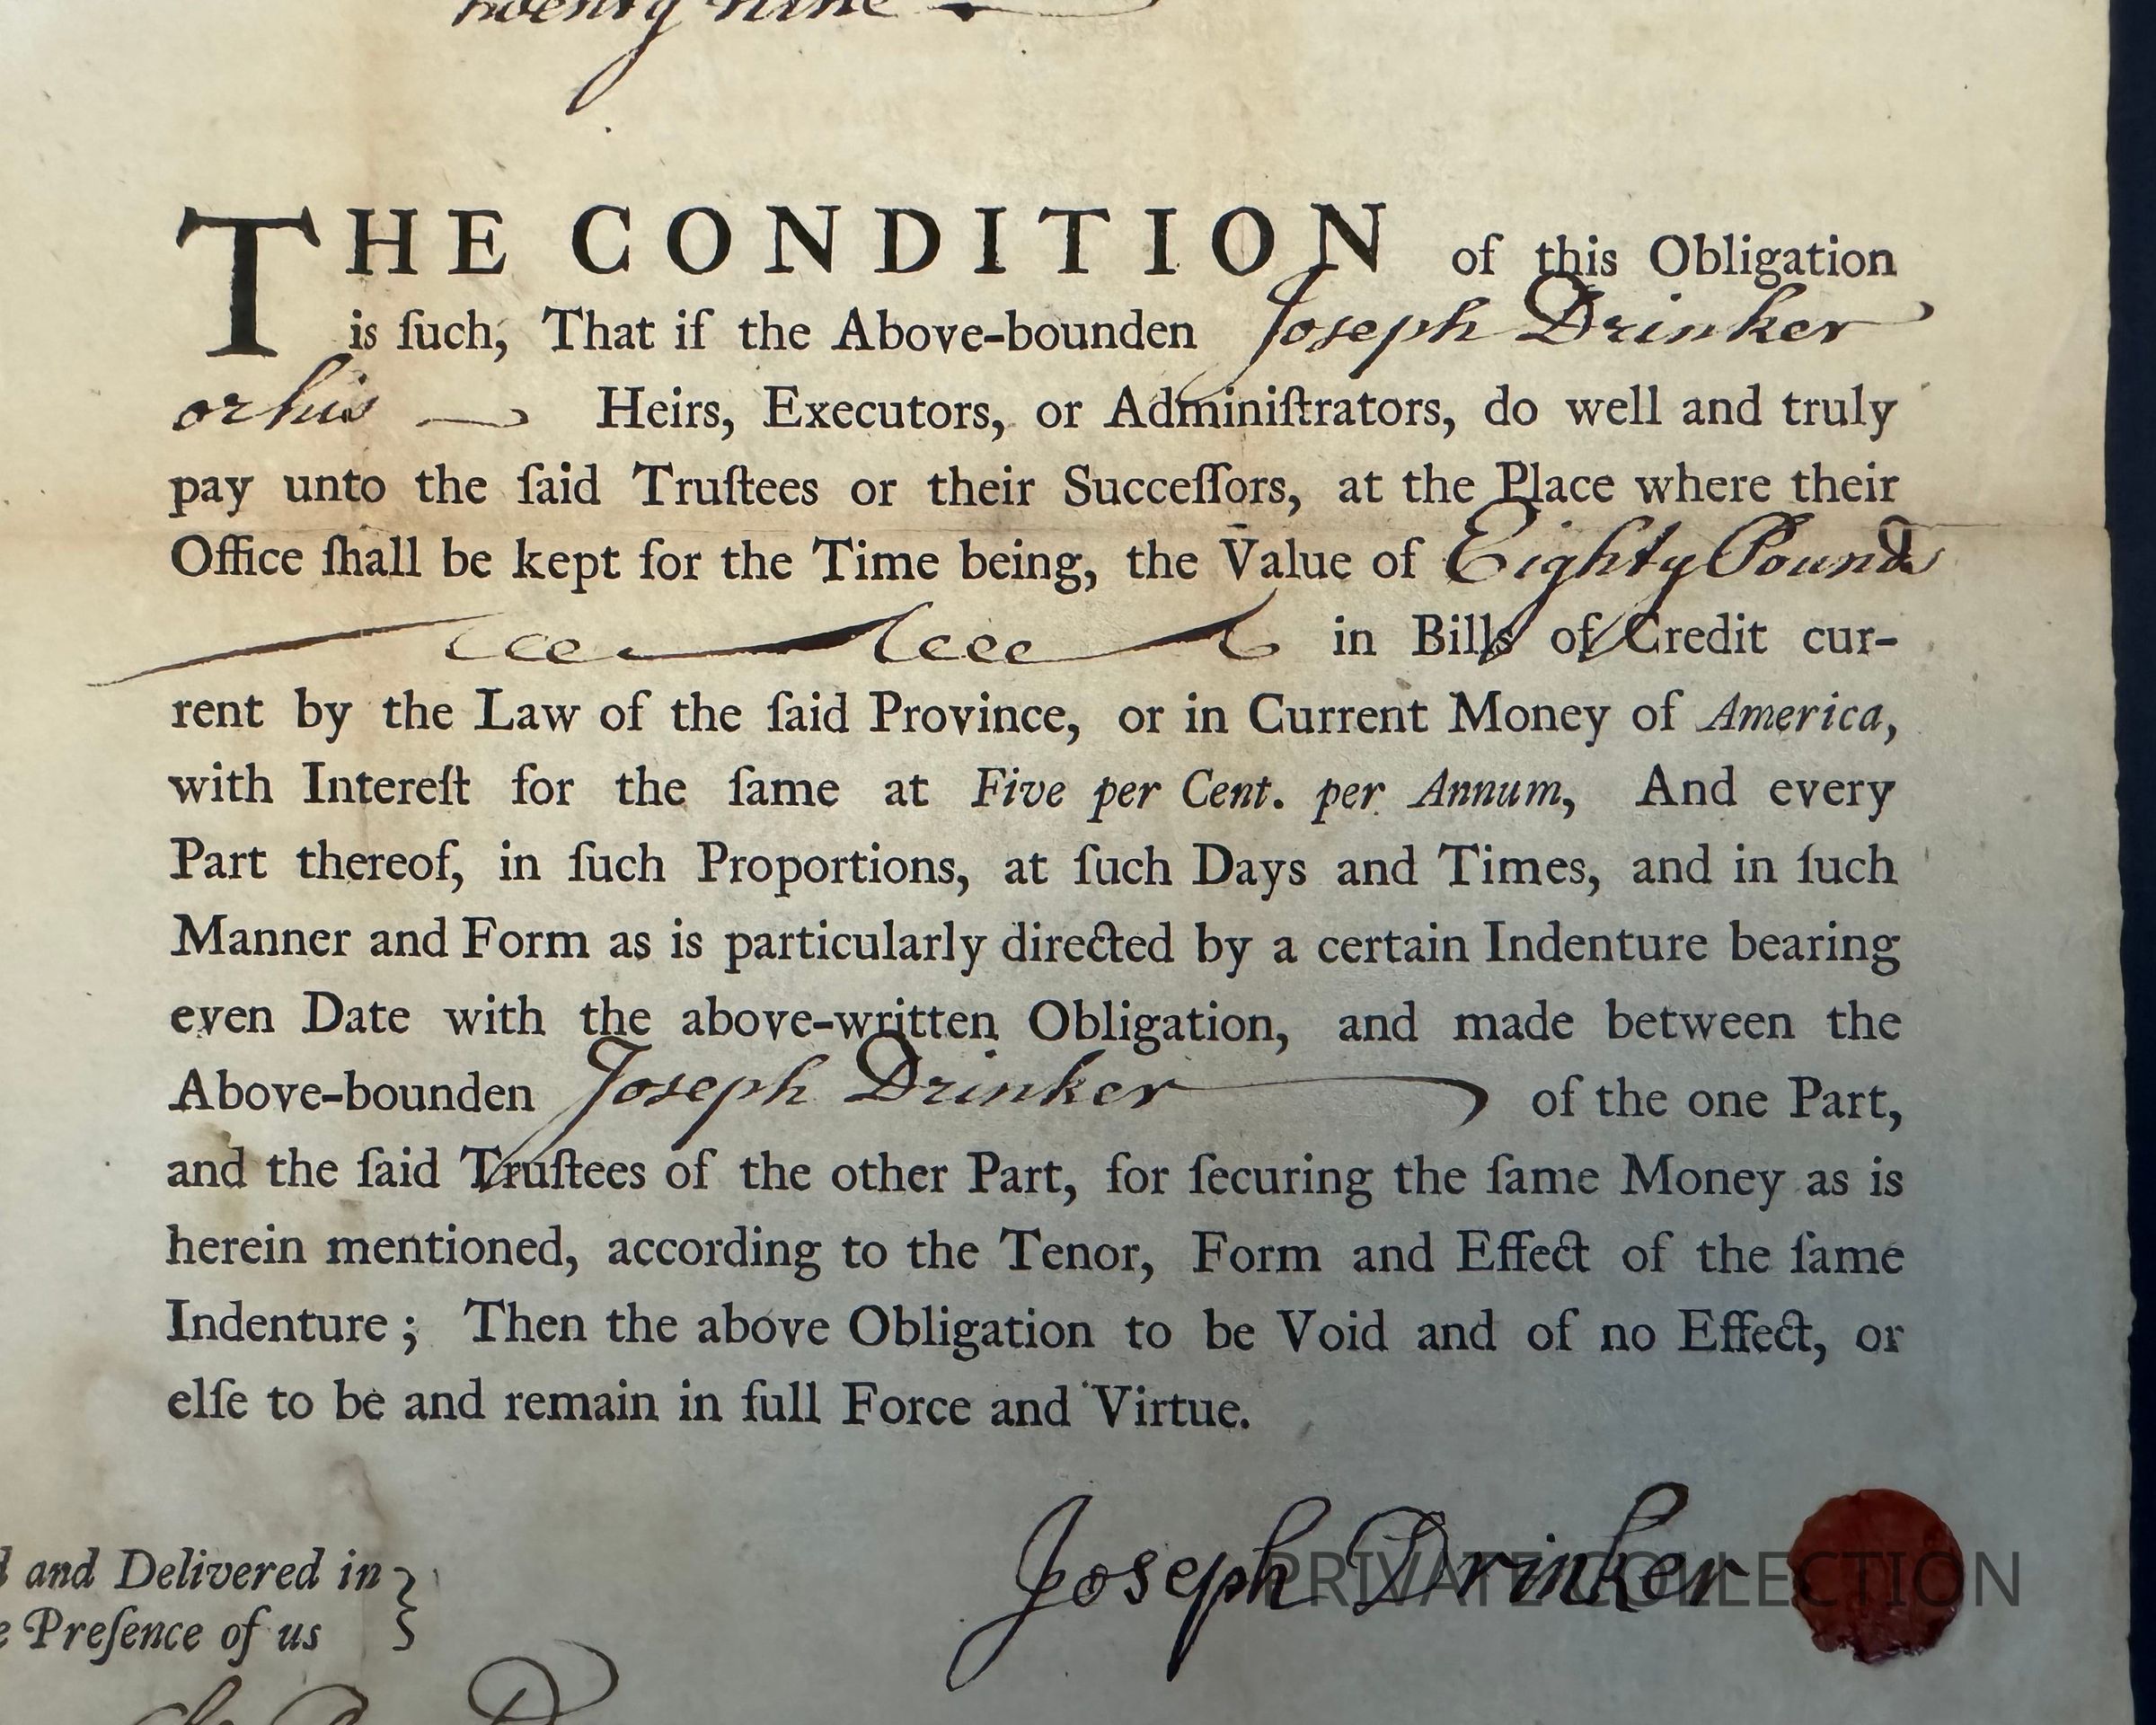 twenty nine
THE CONDITION of this Obligation
is ſuch, That if the Above-bounden Joseph Drinker
or his Heirs, Executors, or Adminiſtrators, do well and truly
pay unto the ſaid Truſtees or their Succeſſors, at the Place where their
Office ſhall be kept for the Time being, the Value of Eighty Pounds
in Bills of Credit cur-
rent by the Law of the ſaid Province, or in Current Money of America,
with Intereſt for the ſame at Five per Cent. per Annum, And every
Part thereof, in ſuch Proportions, at ſuch Days and Times, and in ſuch
Manner and Form as is particularly directed by a certain Indenture bearing
even Date with the above-written Obligation, and made between the
Above-bounden Joseph Drinker of the one Part,
and the ſaid Truſtees of the other Part, for ſecuring the ſame Money as is
herein mentioned, according to the Tenor, Form and Effect of the ſame
Indenture; Then the above Obligation to be Void and of no Effect, or
elſe to be and remain in full Force and Virtue.
Joseph Drinker
PRIVATE COLLECTION
and Delivered in
Preſence of us